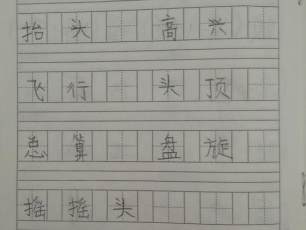 抬头 高兴
飞行 头顶
总算 盘旋
摇摇头